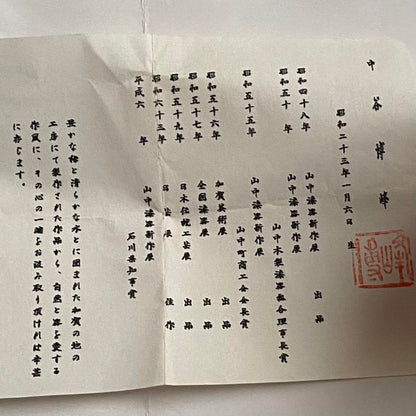 中谷博
昭和二十三年一月六日 生
昭和四十八年 山中漆器新作展 出品
昭和五十年 山中漆器新作展
山中木製漆器組合理事長賞
昭和五十五年 山中漆器新作展
山中町商工会会長賞
昭和五十六年 加賀美術展 出品
昭和五十七年 全国漆器展 出品
昭和五十九年 日本伝統工芸展 出品
昭和六十三年 展 佳作
平成六年 山中漆器新作展
石川県知事賞
豊かな緑と清らかな水とに囲まれた加賀の地の
工房にて製作された作品から、自然と漆を愛する
作風に、その心の一端をお汲み取り頂ければ幸甚
に存じます。